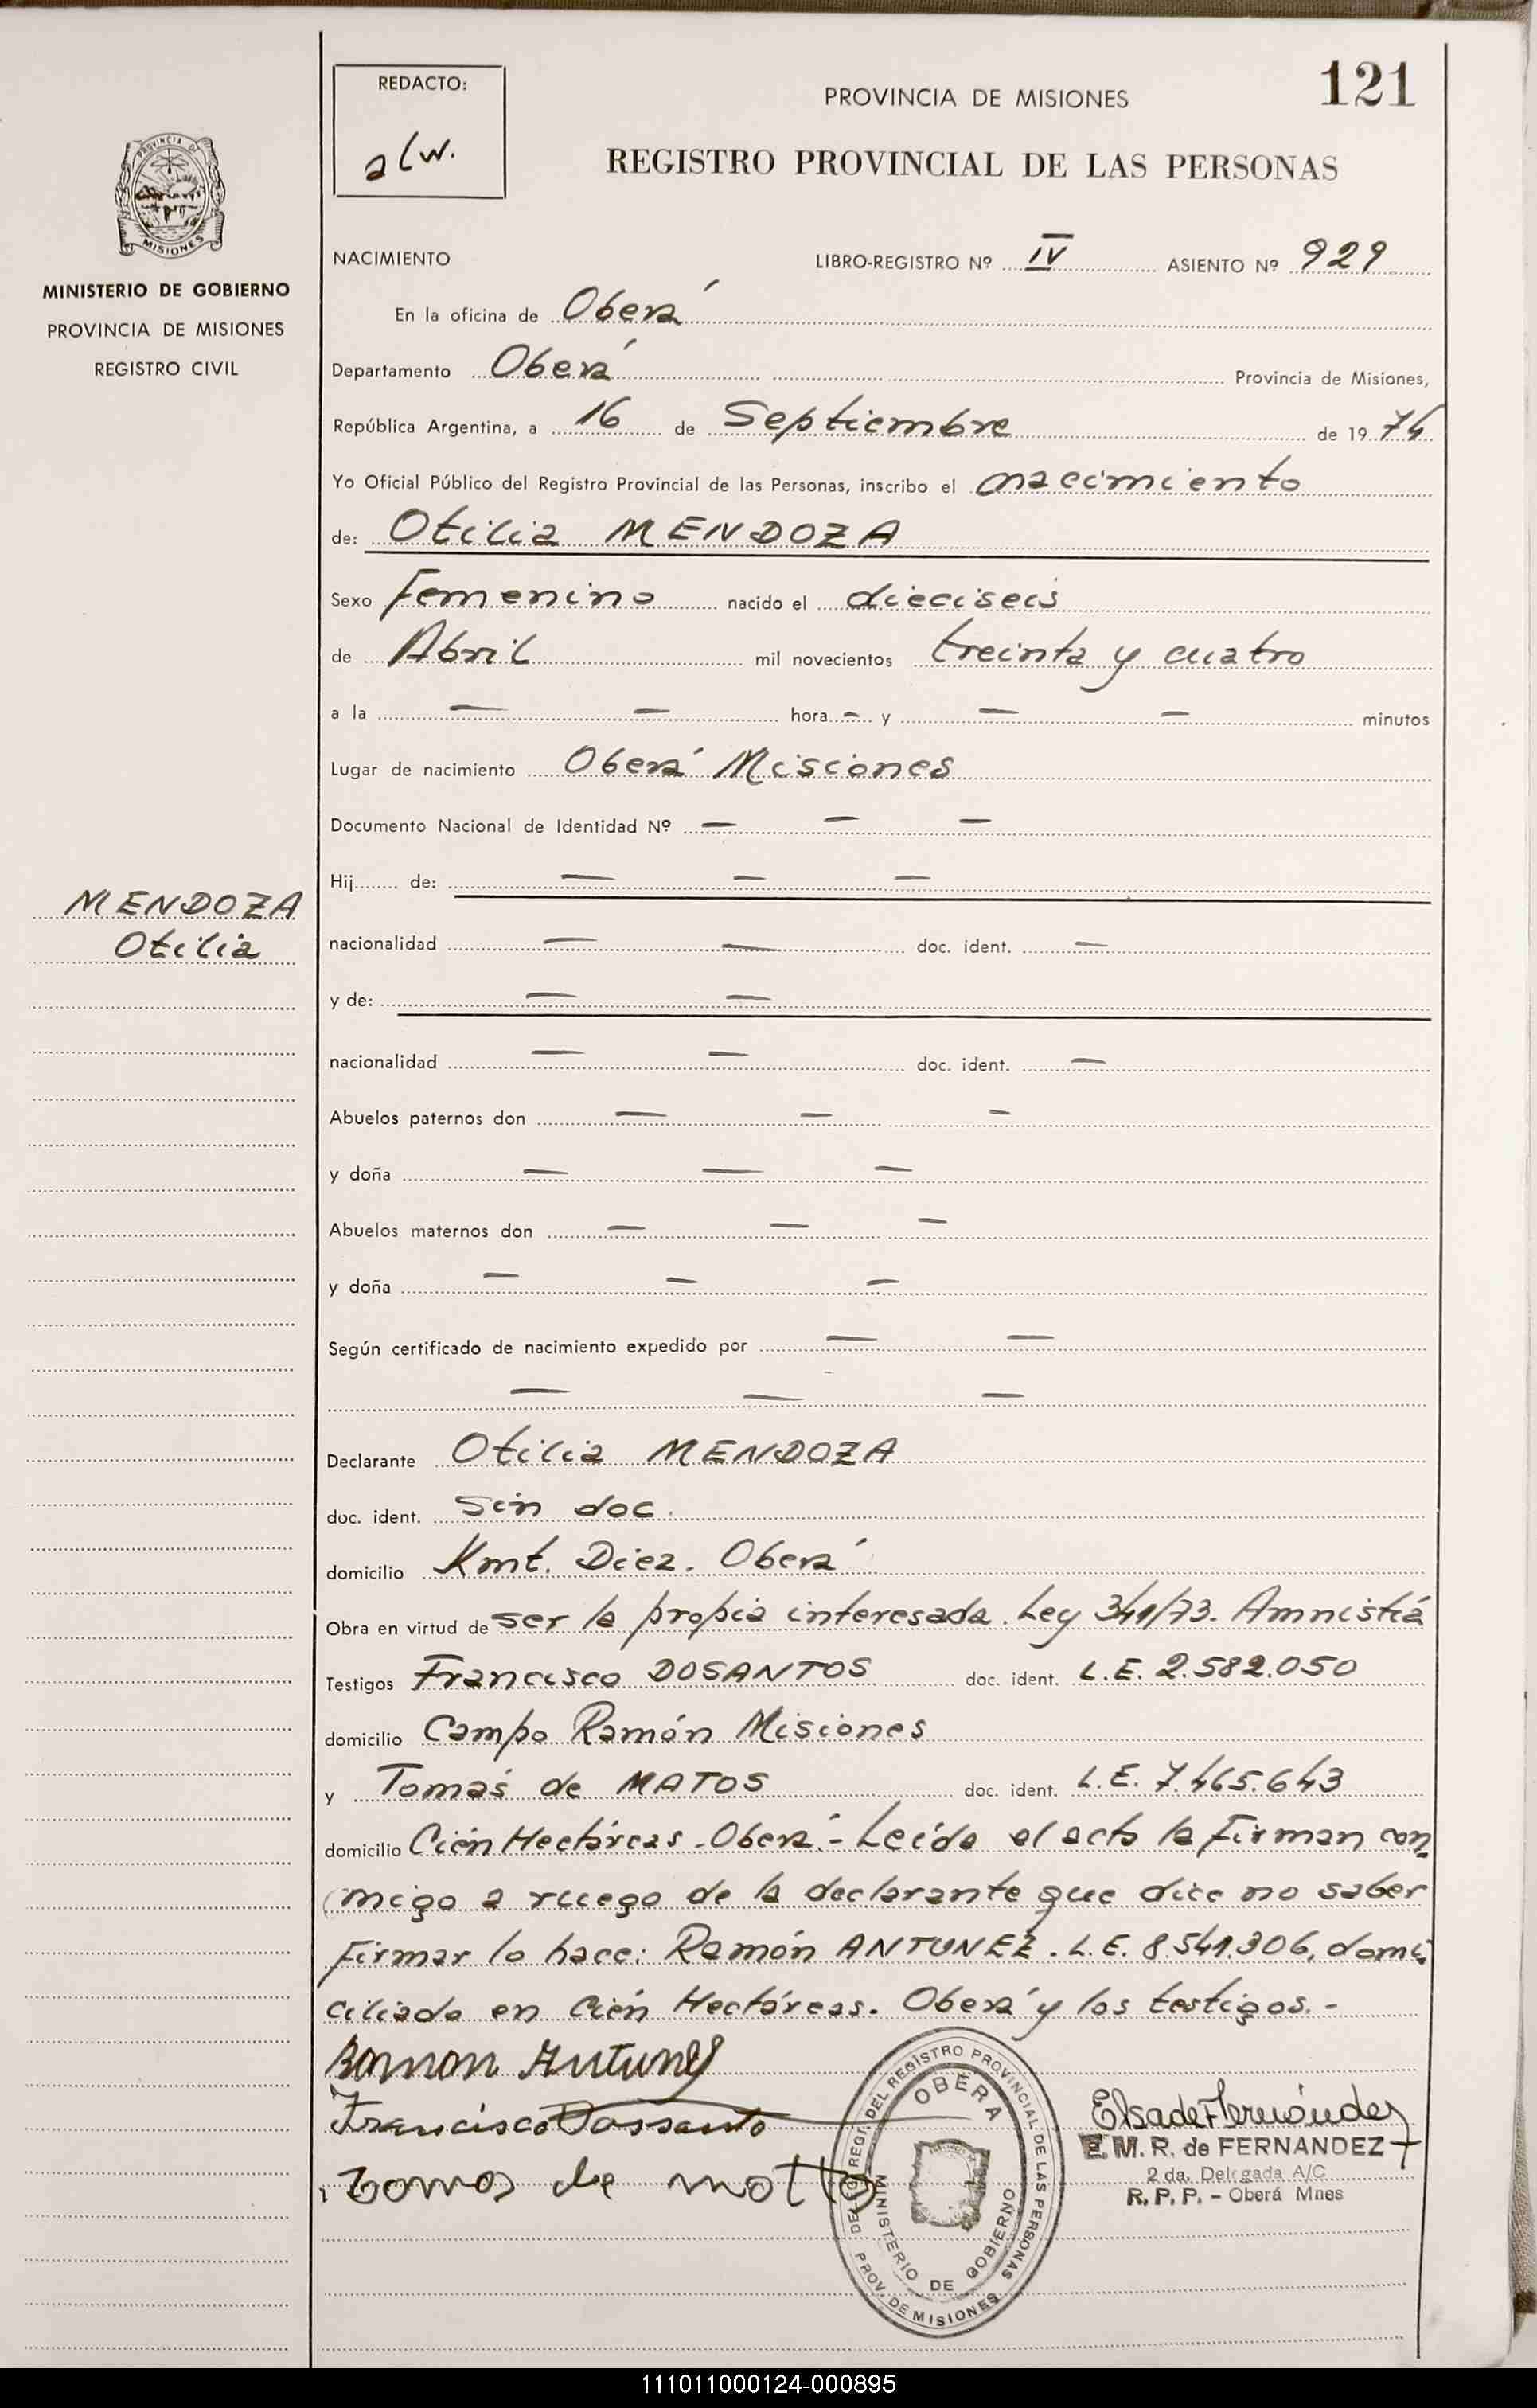 121
REDACTO:
alw.
PROVINCIA DE MISIONES
REGISTRO PROVINCIAL DE LAS PERSONAS
PROVINCIA DE
MISIONES
MINISTERIO DE GOBIERNO
PROVINCIA DE MISIONES
REGISTRO CIVIL
MENDOZA
Otilia
NACIMIENTO LIBRO-REGISTRO Nº IV ASIENTO Nº 929
En la oficina de Oberá
Departamento Oberá Provincia de Misiones,
República Argentina, a 16 de Septiembre de 1974
Yo Oficial Público del Registro Provincial de las Personas, inscribo el nacimiento
de: Otilia MENDOZA
Sexo Femenino nacido el dieciseis
de Abril mil novecientos treinta y cuatro
a la — — hora — y — — minutos
Lugar de nacimiento Oberá Misiones
Documento Nacional de Identidad Nº — — —
Hij de: — — —
nacionalidad — — doc. ident. —
y de: — —
nacionalidad — — doc. ident. —
Abuelos paternos don — — —
y doña — — —
Abuelos maternos don — — —
y doña — — —
Según certificado de nacimiento expedido por — —
— — —
Declarante Otilia MENDOZA
doc. ident. Sin doc.
domicilio Kmt. Diez. Oberá
Obra en virtud de ser la propia interesada. Ley 341/73. Amnistiá
Testigos Francisco DOSANTOS doc. ident. L.E. 2.582.050
domicilio Campo Ramón Misiones
y Tomás de MATOS doc. ident. L.E. 7.465.643
domicilio Cién Hectáreas. Oberá.- Leída el acta la firman con
migo a ruego de la declarante que dice no saber
firmar lo hace: Ramón ANTUNEZ. L.E. 8.541.306, domi
ciliado en Cién Hectáreas. Oberá y los testigos.-
Ramon Antunez
Francisco Dossanto
Tomas de motto
DEL REGISTRO PROVINCIAL DE LAS PERSONAS
OBERA
MINISTERIO DE GOBIERNO
PROV. DE MISIONES
Elsa de Fernández
E. M. R. de FERNANDEZ
2 da. Delegada A/C
R. P. P. - Oberá Mnes
111011000124-000895